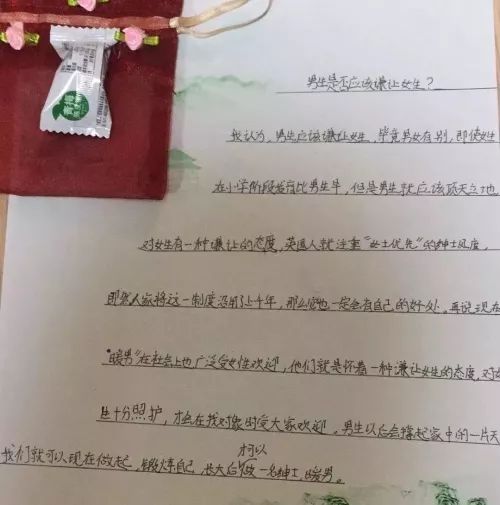 男生是否应该谦让女生？
我认为，男生应该谦让女生，毕竟男女有别，即使女生
在小学阶段发育比男生早，但是男生就应该顶天立地
对女生有一种谦让的态度，英国人就注重“女士优先”的绅士风度，
即然人家将这一制度沿用了上千年，那么它也一定会有自己的好处，再说现在
“暖男”在社会上也广泛受女性欢迎，他们就是怀着一种谦让女生的态度，对女
生十分照护，才会在找对象时受大家欢迎。男生以后会撑起家中的一片天
可以
我们就可以现在做起，锻炼自己，长大后做一名绅士暖男。